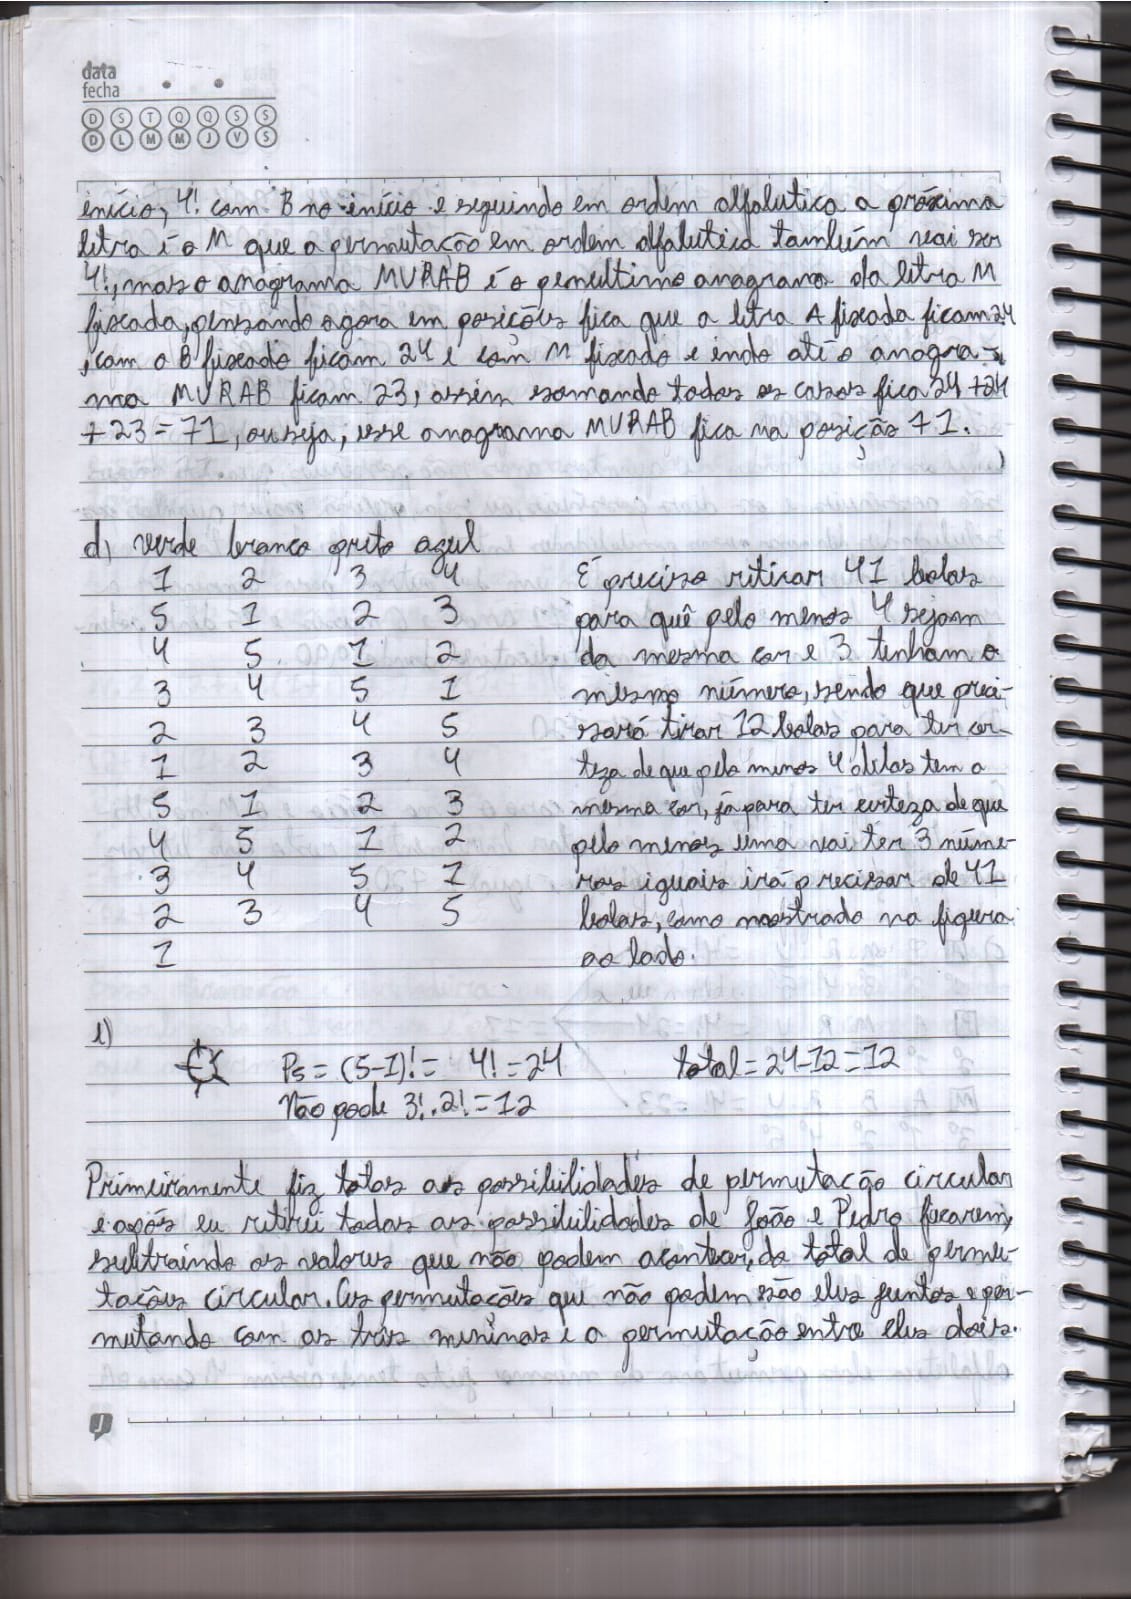 data
fecha
D S T Q Q S S
D L M M J V S
início, 4! com B no início e seguindo em ordem alfabutica a próxima
letra é o M que a permutação em ordem alfabutica também vai ser
4!, mas o anagrama MURAB é o penultimo anagrama da letra M
fixada, pensando agora em posições fica que a letra A fixada ficam 24
, com o B fixado ficam 24 e com M fixado e indo até o anagra-
ma MURAB ficam 23, assim somando todos os casos fica 24 + 24
+ 23 = 71, ou seja, esse anagrama MURAB fica na posição 71.
d) verde branco preto azul
1 2 3 4 É preciso retirar 41 bolas
5 1 2 3 para quê pelo menos 4 sejam
4 5 1 2 da mesma cor e 3 tenham o
3 4 5 1 mesmo número, sendo que preci-
2 3 4 5 sará tirar 12 bolas para ter cer-
1 2 3 4 teza de que pelo menos 4 delas tem a
5 1 2 3 mesma cor, já para ter certeza de que
4 5 1 2 pelo menos uma vai ter 3 núme-
3 4 5 1 ros iguais irá precisar de 41
2 3 4 5 bolas, como mostrado na figura
1 ao lado.
e)
P5 = (5-1)! = 4! = 24 total = 24-12 = 12
Não pode 3! . 2! = 12
Primeiramente fiz totas as possibilidades de permutação circular
e após eu retirei todas as possibilidades de João e Pedro ficarem,
subtraindo os valores que não podem acontecer, do total de permu-
tações circular. As permutações que não podem são eles juntos e per-
mutando com as três meninas e a permutação entre eles dois.
J